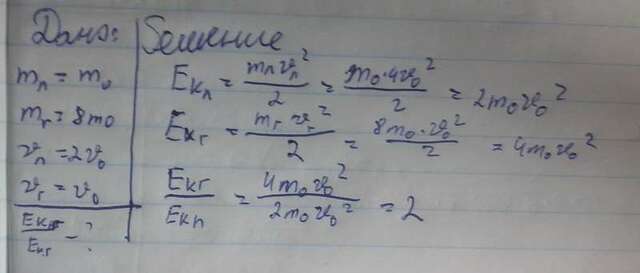 Дано:
m_л = m_0
m_г = 8m_0
v_л = 2v_0
v_г = v_0
E_кл/E_кг - ?
Решение
E_кл = m_л v_л²/2 = m_0·4v_0²/2 = 2m_0v_0²
E_кг = m_г v_г²/2 = 8m_0·v_0²/2 = 4m_0v_0²
E_кг/E_кл = 4m_0v_0²/2m_0v_0² = 2